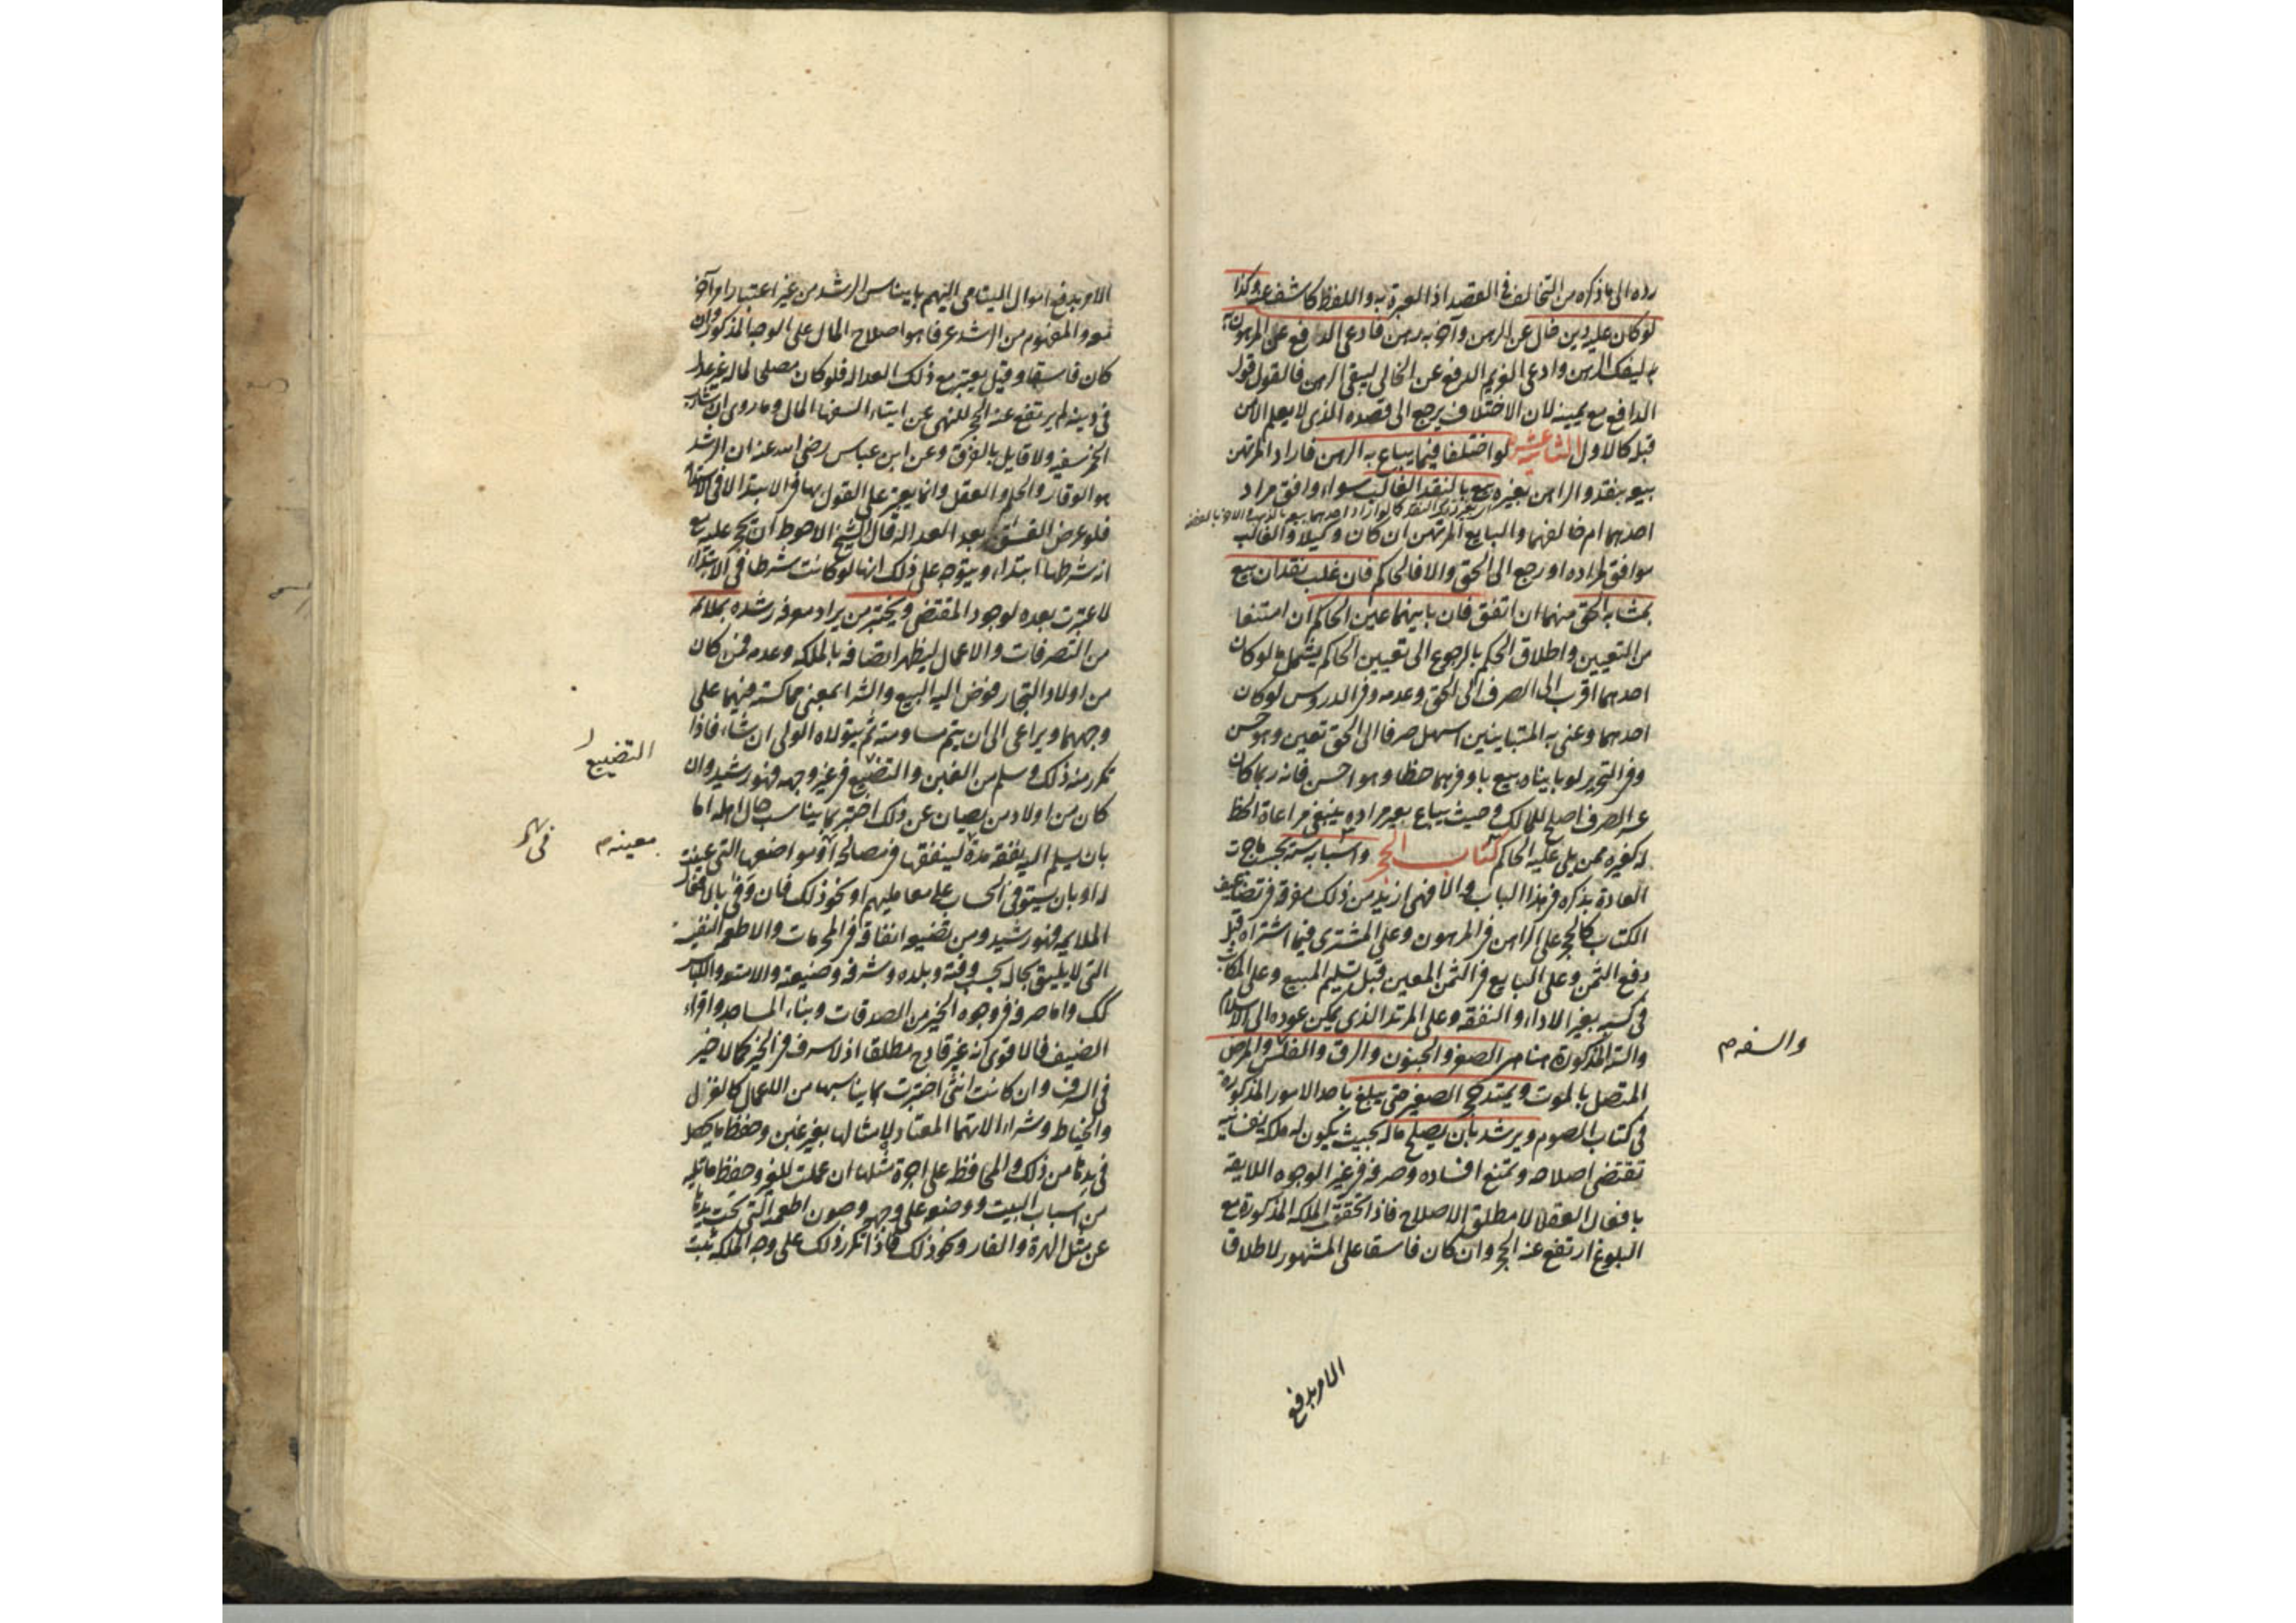 رده الى ما ذكره من التخالف في القصد اذ العبرة به واللفظ كاشف عنه وكذا
لو كان عليه دين خال عن الرهن وآخر به رهن فادعى الدافع عن المرهون به
ليفك الرهن وادعى الغريم الدفع عن الخالي ليبقى الرهن فالقول قول
الدافع مع يمينه لان الاختلاف يرجع الى قصده الذي لا يعلم الا من
قبله كالاول الثانية عشرة لو اختلفا فيما يباع به الرهن فاراد المرتهن
بيعه بنقد والراهن بغيره بيع بالنقد الغالب سواء وافق مراد
احدهما ام خالفهما والبايع المرتهن ان كان وكيلا والغالب
موافق لمراده او رجع الى الحق والا فالحاكم فان غلب نقدان بيع
بمشابه الحق منهما ان اتفق فان بايناهما عين الحاكم ان امتنعا
من التعيين واطلاق الحكم بالرجوع الى تعيين الحاكم يشمل ما لو كان
احدهما اقرب الى الصرف الى الحق وعدمه وفي الدروس لو كان
احدهما وعنى به المتباينين اسهل صرفا الى الحق تعين وهو حسن
وفي التحرير لو بايناه بيع باوفرهما حظا وهو احسن فانه ربما كان
عسر الصرف اصلح للمالك وحيث يباع بغير مراده ينبغي مراعاة الحظ
له كغيره ممن يلي عليه الحاكم كتاب الحجر واسبابه ستة بحسب ما جرت
العادة بذكره في هذا الباب والا فهي ازيد من ذلك مفرقة في تضاعيف
الكتاب كالحجر على الراهن في المرهون وعلى المشتري فيما اشتراه قبل
دفع الثمن وعلى البايع في الثمن المعين قبل تسليم المبيع وعلى المكاتب
في كسبه بغير الاداء والنفقة وعلى المرتد الذي يمكن عوده الى الاسلام
والستة المذكورة هنا هي الصغر والجنون والرق والفلس والمرض
والسفه م
المتصل بالموت ويمتد حجر الصغير حتى يبلغ باحد الامور المذكورة
في كتاب الصوم ويرشد بان يصلح ماله بحيث يكون له ملكة نفسانية
تقتضي اصلاحه وتمنع افساده وصرفه في غير الوجوه اللايقة
بافعال العقلا لا مطلق الاصلاح فاذا تحققت الملكة المذكورة مع
البلوغ ارتفع عنه الحجر وان كان فاسقا على المشهور لاطلاق
الامر بدفع
الامر بدفع اموال اليتامى اليهم بايناس الرشد من غير اعتبار امر آخر
معه والمفهوم من الرشد عرفا هو اصلاح المال على الوجه المذكور وان
كان فاسقا وقيل يعتبر مع ذلك العدالة فلو كان مصلحا لماله غير عدل
في دينه لم يرتفع عنه الحجر للنهي عن ايتاء السفها المال وما روي ان شارب
الخمر سفيه ولا قايل بالفرق وعن ابن عباس رضي الله عنه ان الرشد
هو الوقار والحلم والعقل وانما يعتبر على القول بها في الابتدا لا في الاستدامة
فلو عرض الفسق بعد العدالة قال الشيخ الاحوط ان يحجر عليه مع
انه شرطها ابتداء ويتوجه على ذلك انها لو كانت شرطا في الابتداء
لاعتبرت بعده لوجود المقتضي ويختبر من يراد معرفة رشده بملائمه
من التصرفات والاعمال ليظهر اتصافه بالملكة وعدمه فمن كان
من اولاد التجار فوض اليه البيع والشرا بمعنى مماكسته فيهما على
وجههما ويراعى الى ان يتم مساومته ثم يتولاه الولي ان شاء فاذا
تكرر منه ذلك وسلم من الغبن والتضييع في غير وجهه فهو رشيد وان
التضييع
كان من اولاد من يصان عن ذلك اختبر بما يناسب حال اهله اما
بان يسلم اليه نفقة مدة لينفقها في مصالحه او مواضعها التي عينت
معينه م
له او بان يستوفي الحساب على معامليهم او نحو ذلك فان وفى بالافعال
الملايمة فهو رشيد ومن تضييعه انفاقه في المحرمات والاطعمة النفيسة
التي لا يليق بحاله بحسب وقته وبلده وشرفه وضعته والامتعة واللباس
كك واما صرفه في وجوه الخير من الصدقات وبناء المساجد واقراء
الضيف فالاقوى انه غير قادح مطلقا اذ لا سرف في الخير كما لا خير
في السرف وان كانت انثى اختبرت بما يناسبها من الاعمال كالغزل
والخياط وشراء الاتهما المعتاد لامثالها بغير غبن وحفظ ما يحصل
في يدها من ذلك والمحافظة على اجرة مثلها ان عملت للغير وحفظ ما تليه
من اسباب البيت ووضعه على وجهه وصون اطعمته التي تحت يدها
عن مثل الهرة والفار ونحو ذلك فاذا تكرر ذلك على وجه الملكة ثبت